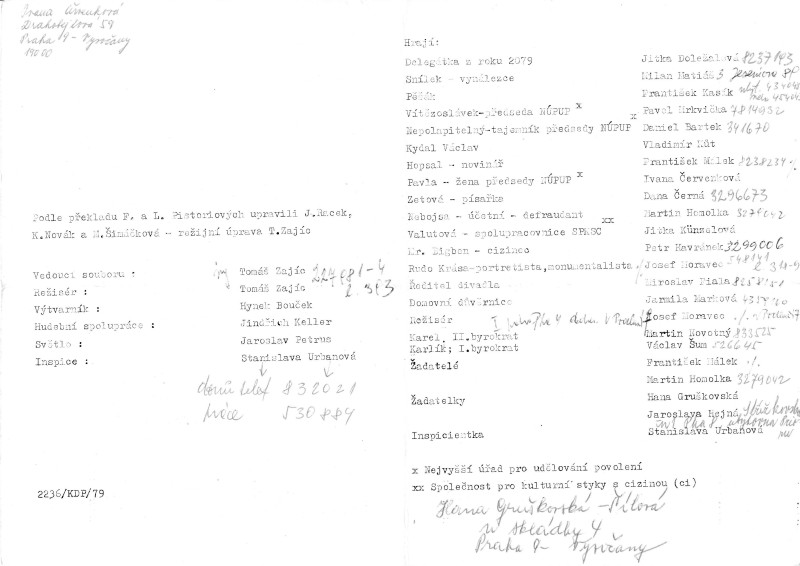 Ivana Červenková
Drahobejlova 59
Praha 9 - Vysočany
190 00
Podle překladu F. a L. Pistoriových upravili J.Racek,
K.Novák a M.Šimáčková - režijní úprava T.Zajíc
Vedoucí souboru : Tomáš Zajíc
Režisér : Tomáš Zajíc
Výtvarník : Hynek Bouček
Hudební spolupráce : Jindřich Keller
Světlo : Jaroslav Petrus
Inspice : Stanislava Urbanová
domů telef 832021
práce 530884
2236/KDP/79
Hrají:
Delegátka z roku 2079 Jitka Doležalová
Snílek - vynálezce Milan Matiáš
Pěšák František Kasík
Vítězoslávek-předseda NÚPUP x Pavol Mrkvička 7814932
Nepolapitelný-tajemník předsedy NÚPUP x Daniel Bartek 341670
Kydal Václav Vladimír Kůt
Hopsal - novinář František Málek 8238234
Pavla - žena předsedy NÚPUP x Ivana Červenková
Zetová - písařka Dana Černá 8296673
Nebojsa - účetní - defraudant Martin Homolka 3279042
Valutová - spolupracovnice SPKSC xx Jitka Künzelová
Mr. Bigbon - cizinec Petr Havránek 3299006
Rudo Krása-portretista,monumentalista Josef Moravec
Ředitel divadla Miroslav Fiala
Domovní důvěrnice Jarmila Marková
Režisér Josef Moravec
Karel, II.byrokrat Martin Novotný 833525
Karlík; I.byrokrat Václav Šum 526645
Žadatelé František Málek
Martin Homolka 3279042
Žadatelky Hana Gruškovská
Jaroslava Hojná
Inspicientka Stanislava Urbanová
x Nejvyšší úřad pro udělování povolení
xx Společnost pro kulturní styky s cizinou (ci)
Hana Gruškovská - Šílová
U skládky 4
Praha 9- Vysočany